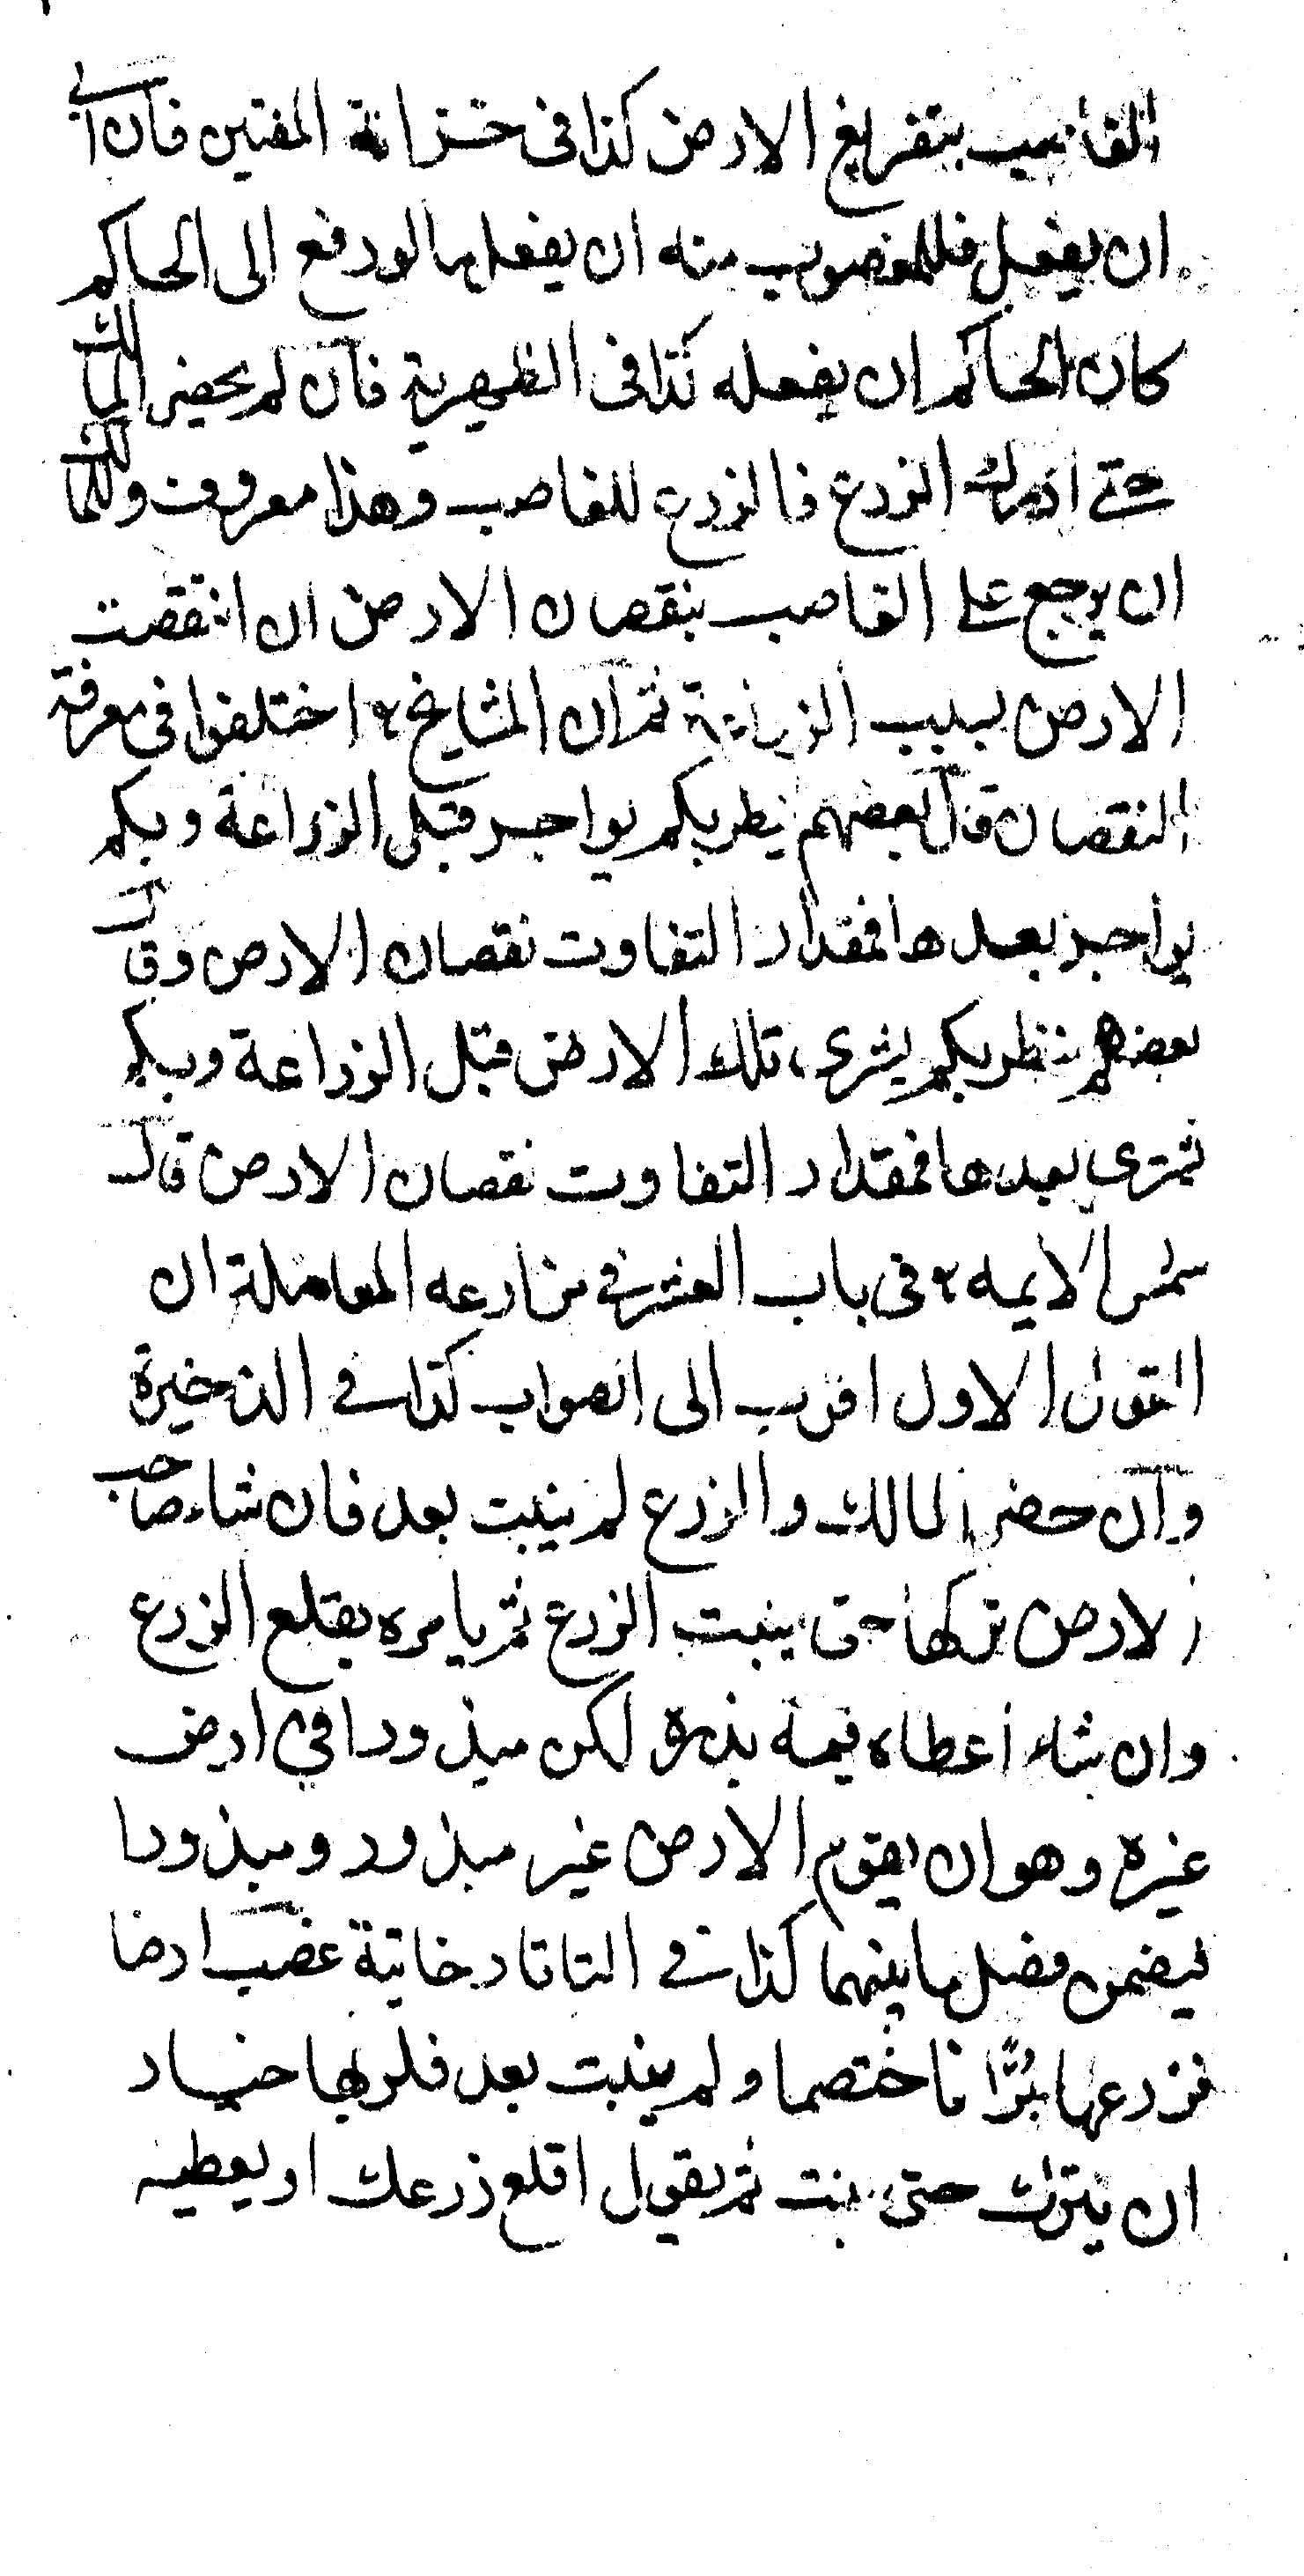 الغاصب بتفريغ الارض كذا فى خزانة المفتين فان ابى
ان يفعل فللمغصوب منه ان يفعل ما لو دفع الى الحاكم
كان الحاكم ان يفعله كذا فى الظهرية فان لم يحضر المالك
حتى ادرك الزرع فالزرع للغاصب وهذا معروف وللمالك
ان يرجع على الغاصب بنقصان الارض ان انتقصت
الارض بسبب الزراعة ثم ان المشايخ اختلفوا فى معرفة
النقصان قال بعضهم ينظر بكم يواجر قبل الزراعة وبكم
يواجر بعدها فمقدار التفاوت نقصان الارض وقال
بعضهم ينظر بكم يشرى تلك الارض قبل الزراعة وبكم
تشترى بعدها فمقدار التفاوت نقصان الارض قال
شمس الايمه فى باب العشر فى مزارعه المعاملة ان
القول الاول اقرب الى الصواب كذا فى الذخيرة
وان حضر المالك والزرع لم ينبت بعد فان شاء صاحب
الارض تركها حتى ينبت الزرع ثم يامره بقلع الزرع
وان شاء اعطاه قيمة بذره لكن مبذورا في ارض
غيره وهو ان يقوم الارض غير مبذور ومبذورا
فيضمن فضل ما بينهما كذا فى التاتارخانية غصب ارضا
فزرعها بُرًّا فاختصما ولم ينبت بعد فلربها خيار
ان يترك حتى ينبت ثم يقول اقلع زرعك او يعطيه